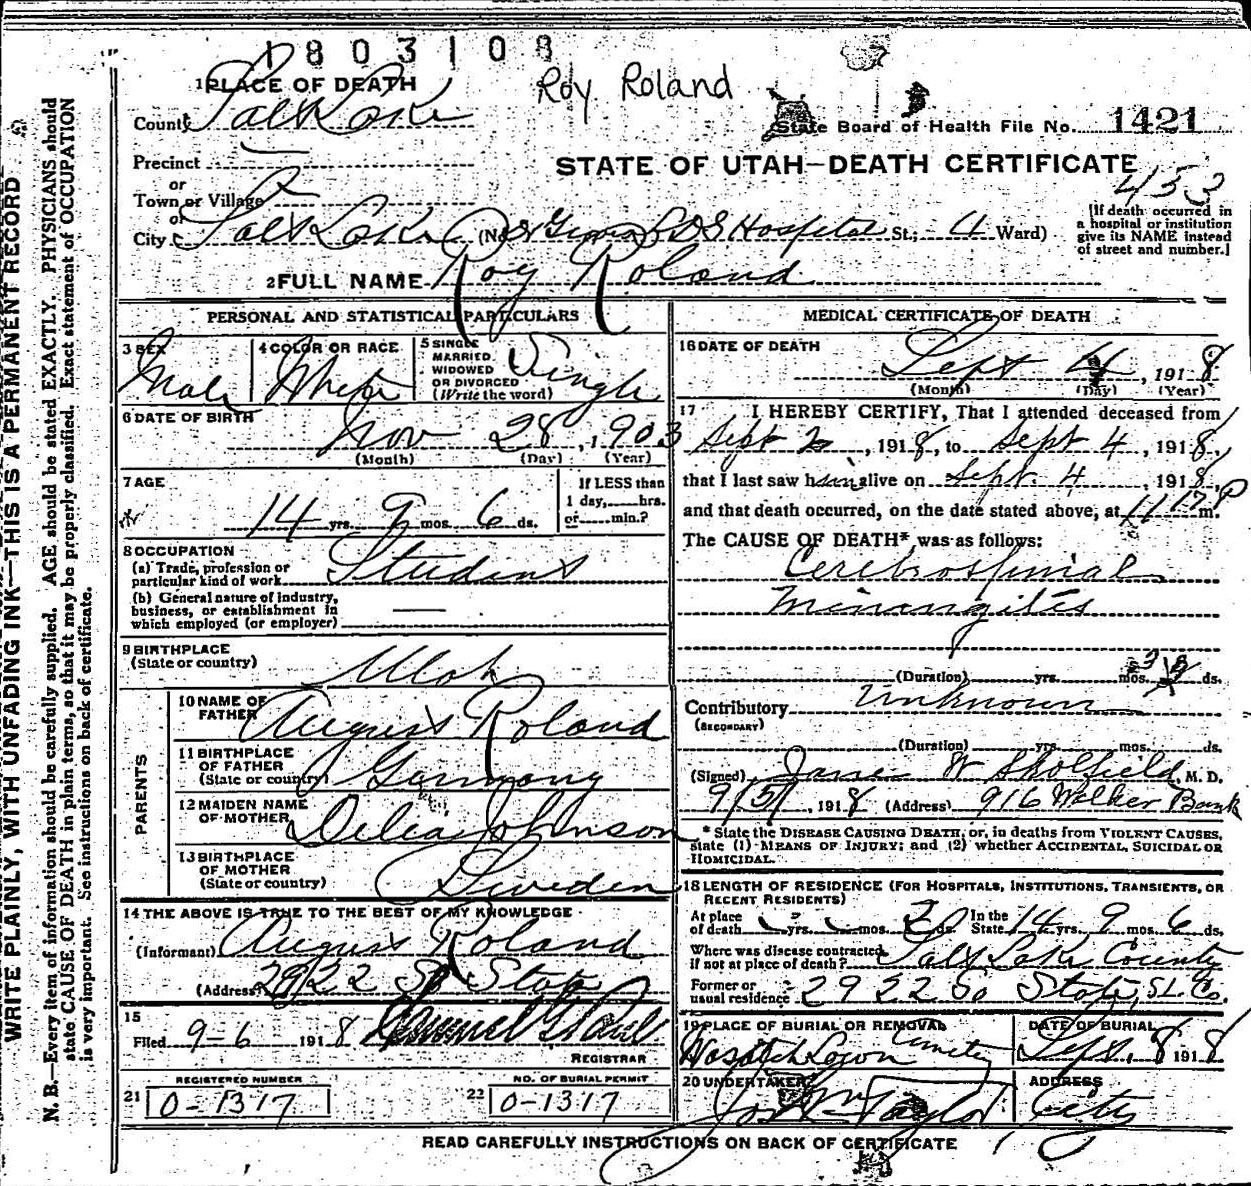 1803108
Roy Roland
1 PLACE OF DEATH
County Salt Lake
State Board of Health File No. 1421
Precinct
STATE OF UTAH—DEATH CERTIFICATE
453
or
Town or Village
or
City Salt Lake (No. LDS Hospital St.; 4 Ward)
[If death occurred in
a hospital or institution
give its NAME instead
of street and number.]
2 FULL NAME Roy Roland
PERSONAL AND STATISTICAL PARTICULARS
3 SEX
Male
4 COLOR OR RACE
White
5 SINGLE
MARRIED
WIDOWED
OR DIVORCED
(Write the word)
Single
6 DATE OF BIRTH
Nov 28, 1903
(Month) (Day) (Year)
7 AGE
14 yrs. 9 mos. 6 ds.
If LESS than
1 day, hrs.
or min.?
8 OCCUPATION
(a) Trade, profession or
particular kind of work Student
(b) General nature of industry,
business, or establishment in
which employed (or employer)
9 BIRTHPLACE
(State or country) Utah
PARENTS
10 NAME OF
FATHER August Roland
11 BIRTHPLACE
OF FATHER
(State or country) Germany
12 MAIDEN NAME
OF MOTHER Delia Johnson
13 BIRTHPLACE
OF MOTHER
(State or country) Sweden
14 THE ABOVE IS TRUE TO THE BEST OF MY KNOWLEDGE
(Informant) August Roland
(Address) 2922 So State
15
Filed 9-6 1918
REGISTRAR
REGISTERED NUMBER
21 0-1317
NO. OF BURIAL PERMIT
22 0-1317
MEDICAL CERTIFICATE OF DEATH
16 DATE OF DEATH
Sept 4, 1918
(Month) (Day) (Year)
17 I HEREBY CERTIFY, That I attended deceased from
Sept 2, 1918, to Sept 4, 1918,
that I last saw him alive on Sept. 4, 1918,
and that death occurred, on the date stated above, at P m.
The CAUSE OF DEATH* was as follows:
Cerebrospinial
Meinangites
(Duration) yrs. mos. 3 ds.
Contributory Unknown
(SECONDARY)
(Duration) yrs. mos. ds.
(Signed) James W Sholfield, M. D.
9/5/, 1918 (Address) 916 Walker Bank
* State the DISEASE CAUSING DEATH, or, in deaths from VIOLENT CAUSES,
state (1) MEANS OF INJURY; and (2) whether ACCIDENTAL, SUICIDAL OR
HOMICIDAL.
18 LENGTH OF RESIDENCE (FOR HOSPITALS, INSTITUTIONS, TRANSIENTS, OR
RECENT RESIDENTS)
At place
of death yrs. mos. 2 ds. In the
State 14 yrs. 9 mos. 6 ds.
Where was disease contracted,
if not at place of death? Salt Lake County
Former or
usual residence 2922 So State, S.L. Co.
19 PLACE OF BURIAL OR REMOVAL
Wasatch Lawn Cemetery
DATE OF BURIAL
Sept. 8 1918
20 UNDERTAKER
Jos Wm Taylor
ADDRESS
City
READ CAREFULLY INSTRUCTIONS ON BACK OF CERTIFICATE
WRITE PLAINLY, WITH UNFADING INK—THIS IS A PERMANENT RECORD
N. B.—Every item of information should be carefully supplied. AGE should be stated EXACTLY. PHYSICIANS should
state CAUSE OF DEATH in plain terms, so that it may be properly classified. Exact statement of OCCUPATION
is very important. See instructions on back of certificate.